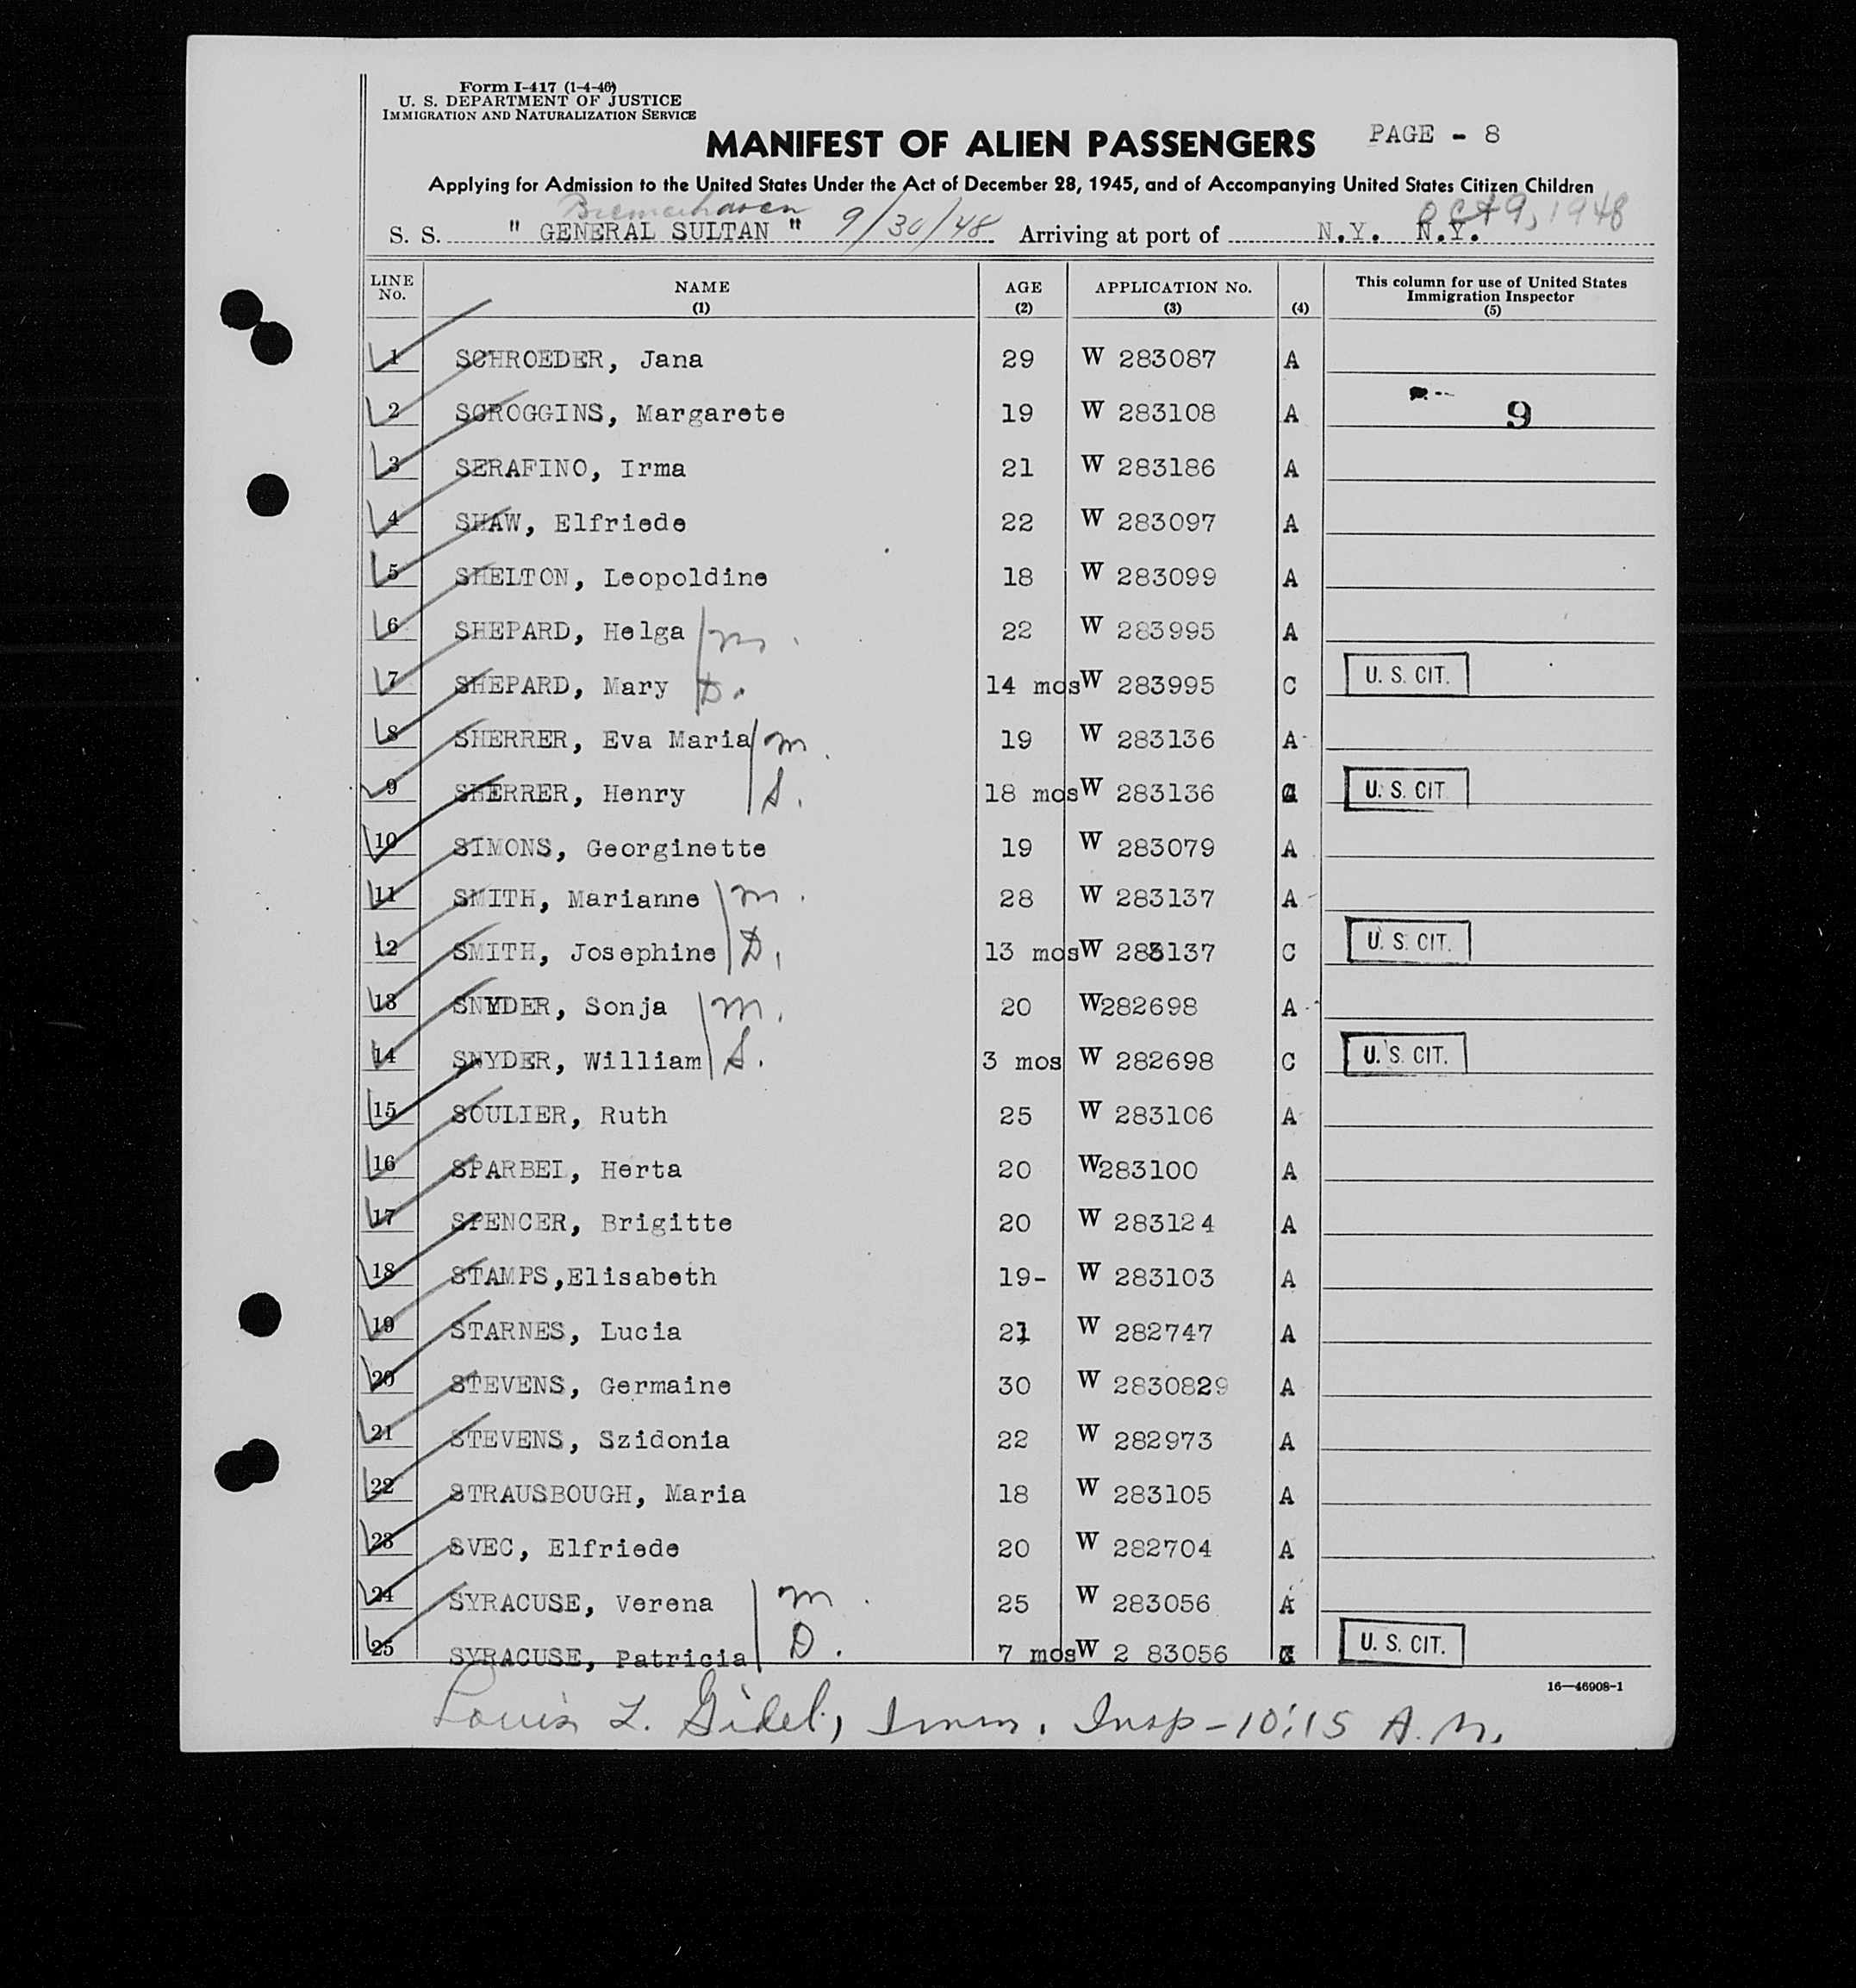 Form I-417 (1-4-46)
U. S. DEPARTMENT OF JUSTICE
IMMIGRATION AND NATURALIZATION SERVICE
MANIFEST OF ALIEN PASSENGERS PAGE - 8
Applying for Admission to the United States Under the Act of December 28, 1945, and of Accompanying United States Citizen Children
Bremerhaven Oct 9, 1948
S. S. " GENERAL SULTAN " 9/30/48 Arriving at port of N.Y. N.Y.
LINE No. NAME (1) AGE (2) APPLICATION No. (3) (4) This column for use of United States Immigration Inspector (5)
1 SCHROEDER, Jana 29 W 283087 A
2 SCROGGINS, Margarete 19 W 283108 A 9
3 SERAFINO, Irma 21 W 283186 A
4 SHAW, Elfriede 22 W 283097 A
5 SHELTON, Leopoldine 18 W 283099 A
6 SHEPARD, Helga m 22 W 283995 A
7 SHEPARD, Mary D. 14 mos W 283995 C U. S. CIT.
8 SHERRER, Eva Maria m. 19 W 283136 A
9 SHERRER, Henry S. 18 mos W 283136 U. S. CIT.
10 SIMONS, Georginette 19 W 283079 A
11 SMITH, Marianne m. 28 W 283137 A
12 SMITH, Josephine D. 13 mos W 283137 C U. S. CIT.
13 SNYDER, Sonja m. 20 W282698 A
14 SNYDER, William S. 3 mos W 282698 C U. S. CIT.
15 SOULIER, Ruth 25 W 283106 A
16 SPARBEI, Herta 20 W283100 A
17 SPENCER, Brigitte 20 W 283124 A
18 STAMPS,Elisabeth 19- W 283103 A
19 STARNES, Lucia 21 W 282747 A
20 STEVENS, Germaine 30 W 2830829 A
21 STEVENS, Szidonia 22 W 282973 A
22 STRAUSBOUGH, Maria 18 W 283105 A
23 SVEC, Elfriede 20 W 282704 A
24 SYRACUSE, Verena m. 25 W 283056 A
25 SYRACUSE, Patricia D. 7 mos W 2 83056 U. S. CIT.
16—46908-1
Louis L. Gidel, Imm. Insp - 10:15 A.M.